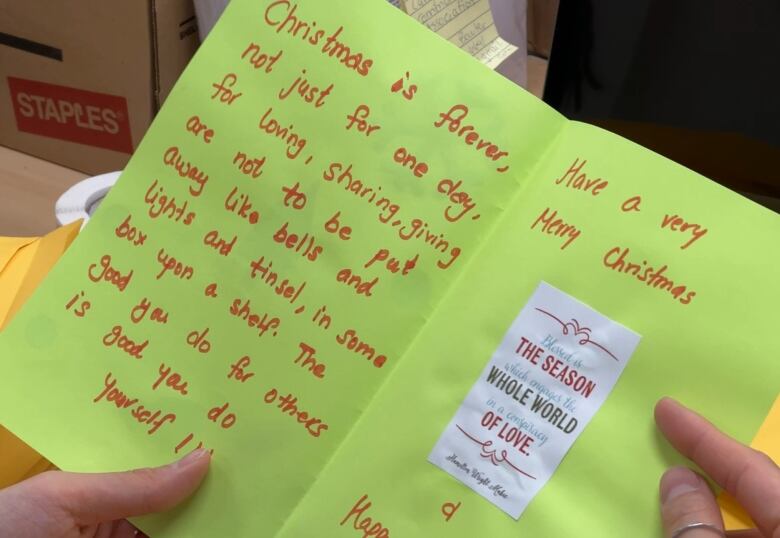 STAPLES
Christmas is forever,
not just for one day,
for loving, sharing, giving
are not to be put
away like bells and
lights and tinsel, in some
box upon a shelf. The
good you do for others
is good you do
yourself
Have a very
Merry Christmas
Blessed is
THE SEASON
which engages the
WHOLE WORLD
in a conspiracy
OF LOVE.
Hamilton Wright Mabie